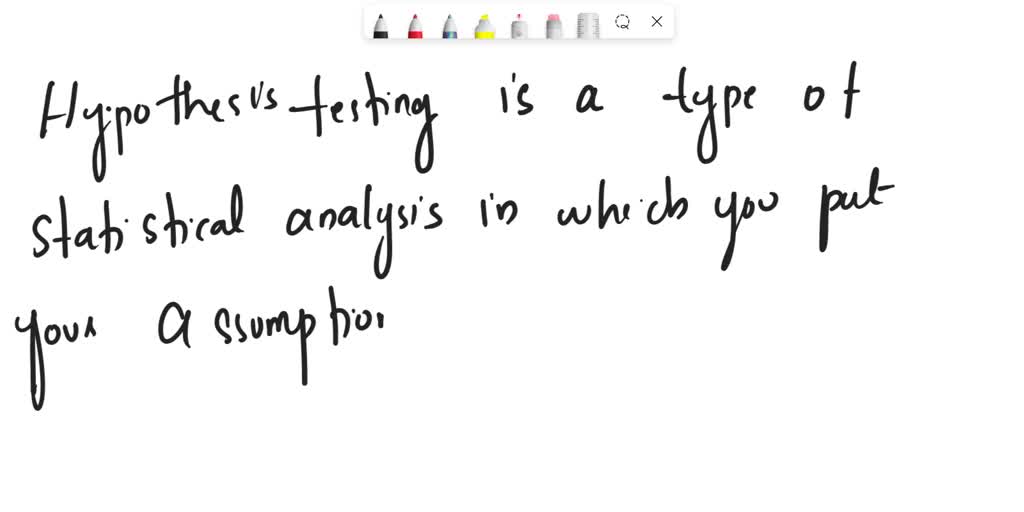 Hypothesis testing is a type of
statistical analysis in which you put
your assumption